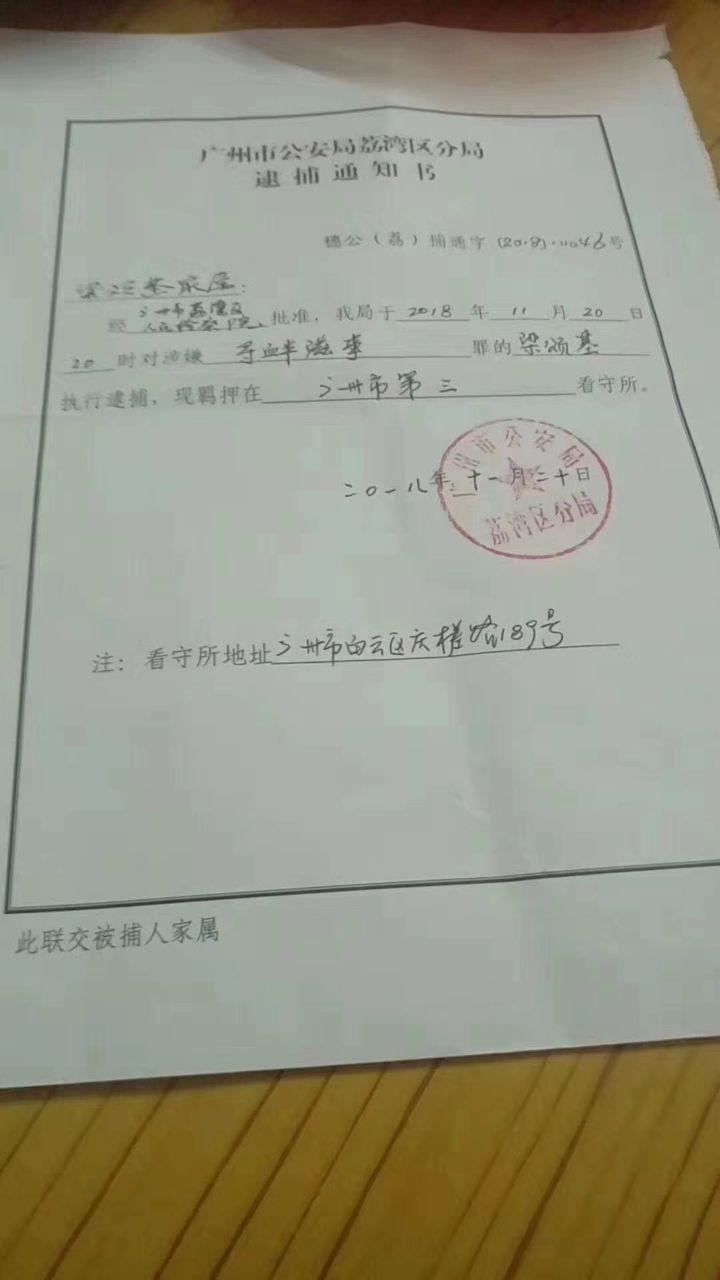 广州市公安局荔湾区分局
逮捕通知书
穗公（荔）捕通字〔2018〕·0046号
梁颂基家属：
经广州市荔湾区人民检察院批准，我局于2018年11月20日
20时对涉嫌寻衅滋事罪的梁颂基
执行逮捕，现羁押在广州市第三看守所。
二〇一八年十一月二十日
广州市公安局
荔湾区分局
注：看守所地址广州市白云区庆槎路189号
此联交被捕人家属